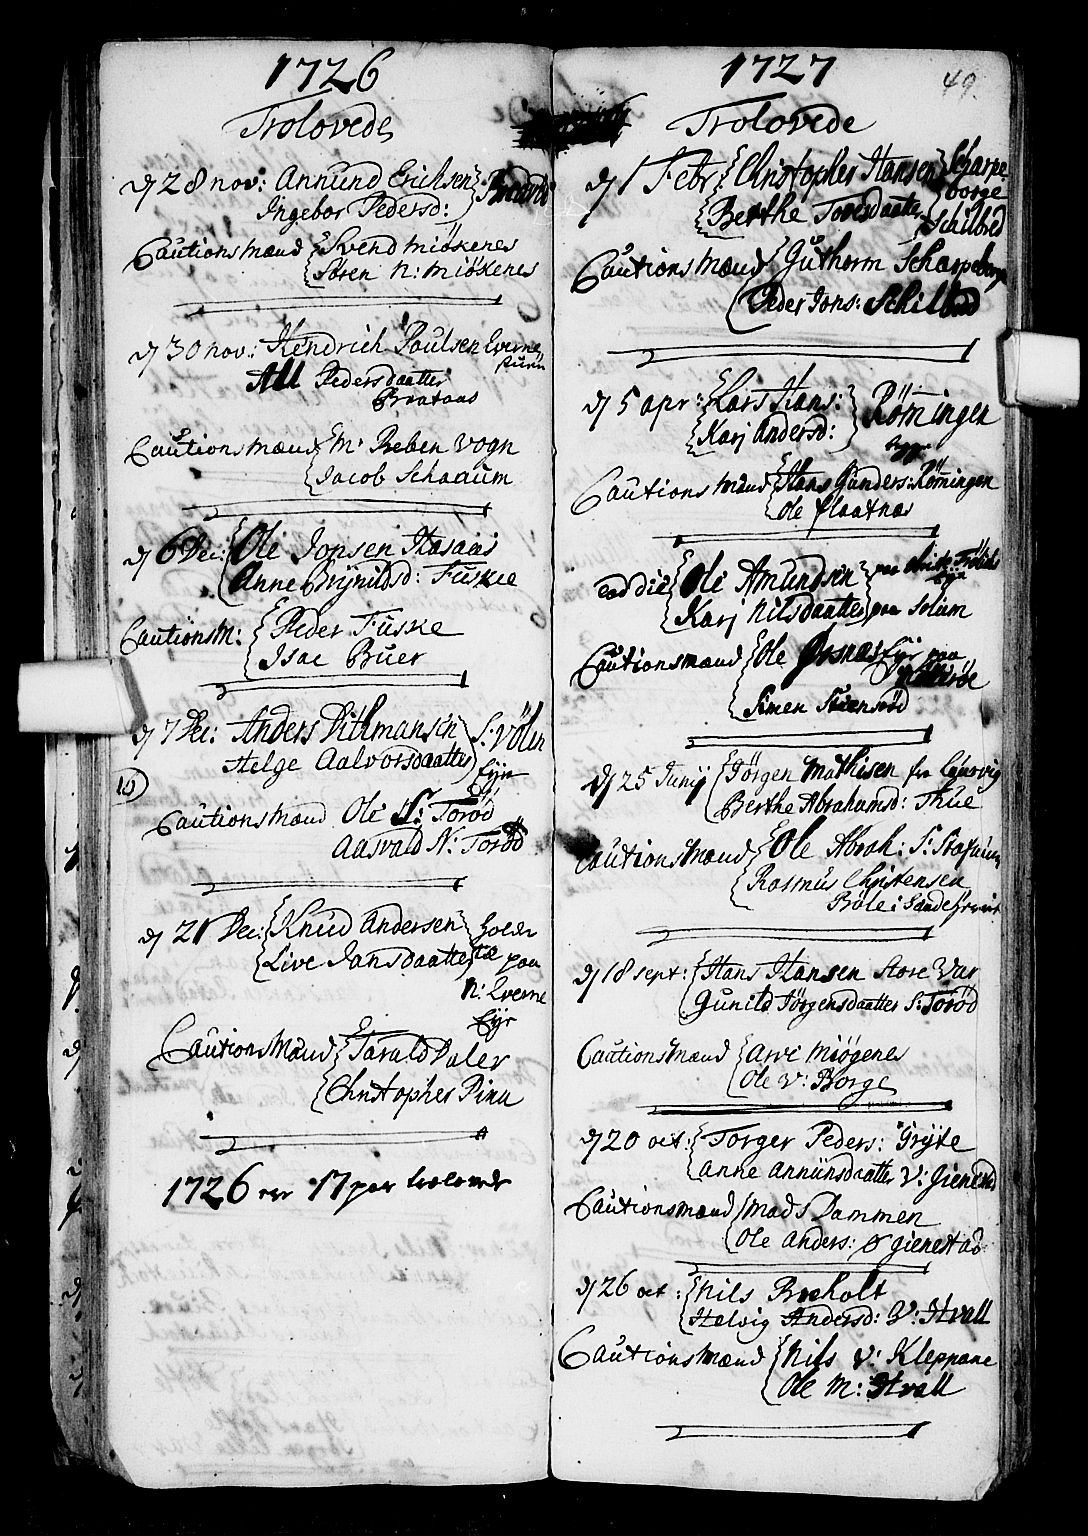 1726
Trolovede
dj 28 nov: Annund Erichsen
Ingebor Pedersd:
Cautions Mænd Svend Miøsenes
Søren N: Miøsenes
dj 30 nov: Hendrich Poulsen Everne
Pedersdaatter
Cautions Mænd Mr Preben Vogn
Jacob Schaaum
dj 6 Dec: Ole Jonsen Hasaas
Anne Brynildsd: Fuskie
CautionsM: Peder Fuske
Isac Buer
dj 7 Dec: Anders Dithmansøn S: Vølen
Helge Aalvorsdaatter Eyr
16
Cautions Mænd Ole S: Torød
Aasvald N: Torød
dj 21 Dec: Knud Andersen
Live Jansdaatter paa
N: Everne
Eyr
Cautions Mænd Tarald Daler
Christopher Pinu
1726 er 17 par trolovede
1727
49.
Trolovede
dj 1 Febr Christopher Hansen Scharpe-
borge
Berthe Toersdaatter Schilbred
Cautions Mænd Guthorm Scharpeborge
Peder Jons: Schilbred
dj 5 apr: Lars Hans: Rømingen
Karj Andersd:
Cautions Mænd Hans Gunders: Rømingen
Ole flaatnas
eod die Ole Amundsen paa
Karj Nilsdaatter paa Solum
Cautionsmænd Ole Eyr paa
Simen Steensrød
dj 25 Junij Jørgen Mathisen fra Laurvig
Berthe Abrahamsd: Thue
Cautions Mænd Ole Abrah: S: Stafuum
Rasmus Christensen
Bøle i Sandefiorit
dj 18 sept: Hans Hansen Store Var
Gunild Jørgensdaatter S: Torød
Cautions Mænd Arve Miøgenes
Ole V: Borge
dj 20 oct: Torger Peders: Gryte
Anne Annunsdaatter V: Gienestad
Cautionsmænd Mads Dammen
Ole Anders: Ø Gienestad
dj 26 oct: Nils Bocholt
Helvig Andersd: V: Hvall
Cautions Mænd Nils V: Kleppane
Ole M: Hvall